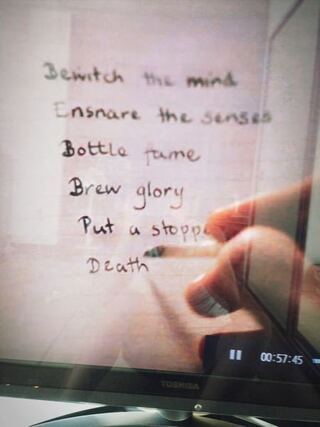 Bewitch the mind
Ensnare the senses
Bottle fame
Brew glory
Put a stoppe
Death
00:57:45
TOSHIBA